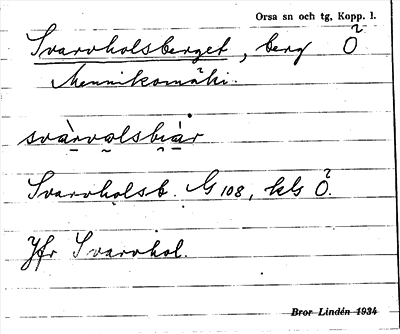 Orsa sn och tg, Kopp. l.
Svarvholsberget, berg Ö?
Mennikomäki.
svàrvolsbiàr
Svarvholsb. G 108, kls Ö?.
Jfr Svarvhol.
Bror Lindén 1934